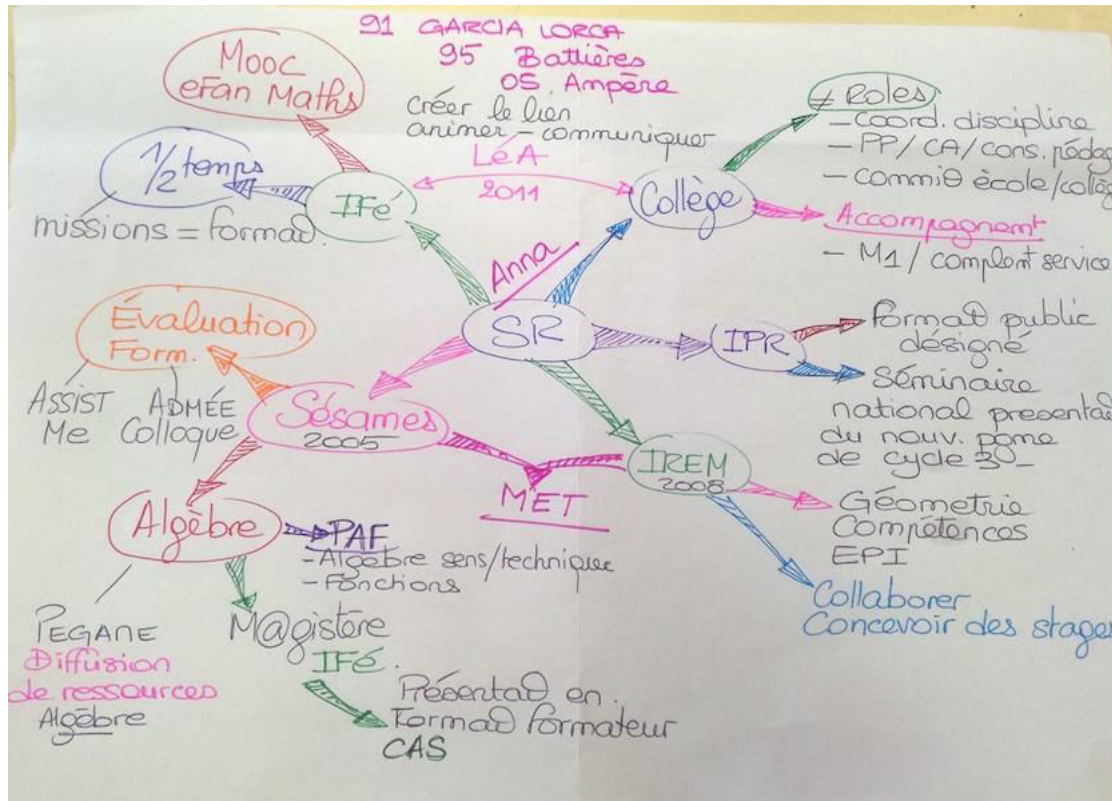 91 GARCIA LORCA
95 Battières
05 Ampère
Mooc
eFan Maths
créer le lien
animer – communiquer
LéA
2011
1/2 temps
missions = format°
IFé
Collège
≠ Roles
– Coord. discipline
– PP / CA / cons. pédag
– commi° école/collège
Accompagnemt
– M1 / complemt service
Anna
SR
IPR
format° public
désigné
Séminaire
national presentat°
du nouv. pgme
de cycle 3
Évaluation
Form.
ASSIST
Me
ADMÉE
Colloque
Sésames
2005
MET
IREM
2008
Géometrie
Compétences
EPI
Collaborer
Concevoir des stages
Algèbre
PAF
– Algèbre sens/technique
– Fonctions
PEGANE
Diffusion
de ressources
Algèbre
M@gistère
IFé
Présentat° en
Format° formateur
CAS